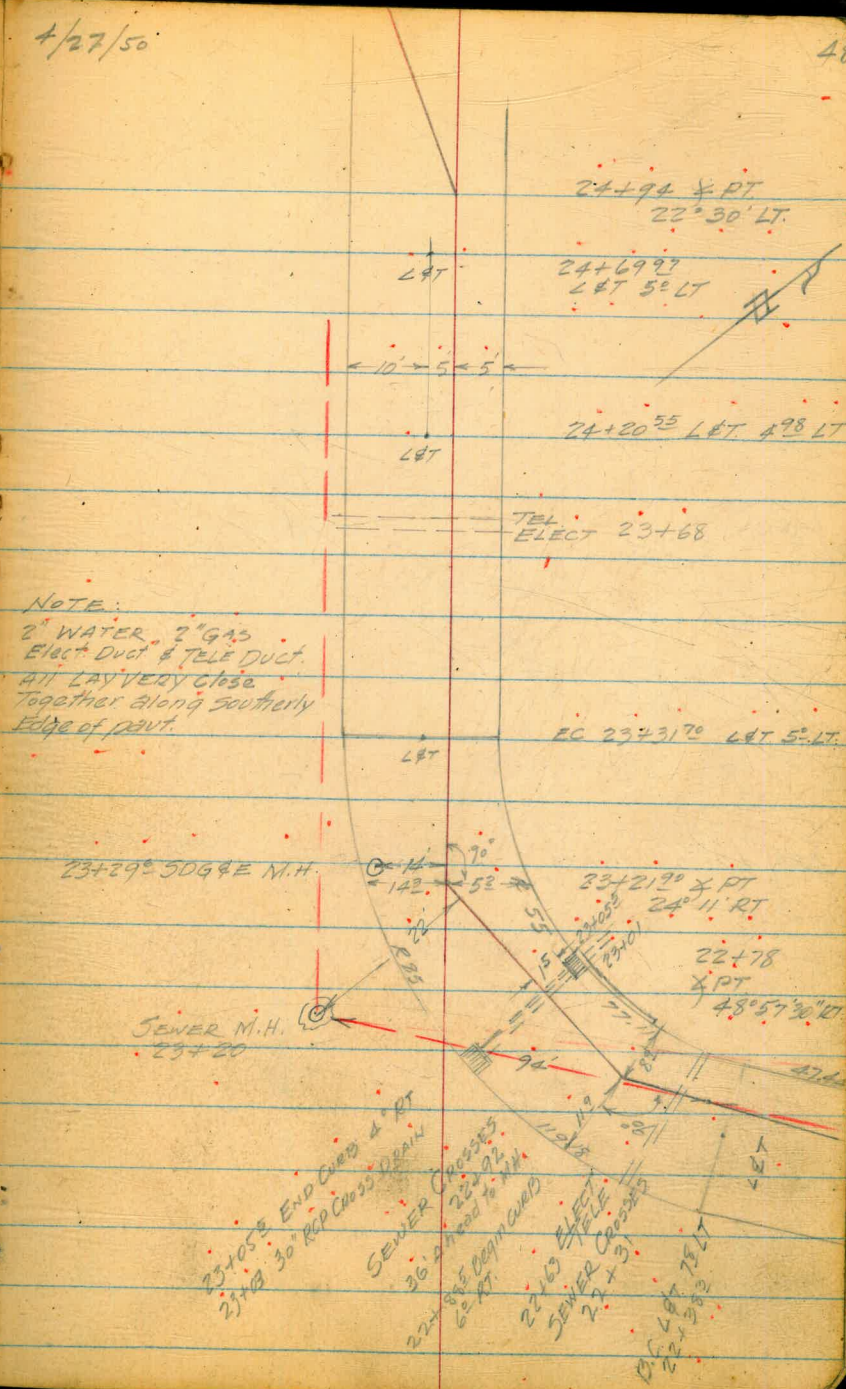 4/27/50
48
24+94 ⊼ PT.
22° 30' LT.
L&T
24+69 97
L&T 5 0 LT
10' 5' 5'
24+20 55 L&T 4 98 LT
L&T
TEL.
ELECT 23+68
NOTE:
2" WATER, 2" GAS
Elect. Duct & TELE Duct.
All LAY VERY Close
Together along southerly
Edge of pavt.
EC 23+31 70 L&T 5 0 LT.
L&T
90°
23+29 0 SDG&E M.H.
14'
14 3 5 3
23+21 90 ⊼ PT
24° 11' RT
22'
R 55
23+05 5
23+01
R 85
15
22+78
⊼ PT
48° 57' 30" RT.
77.
SEWER M.H.
23+20
94'
8 2
47.4
11 9
11 9
18
L&T
23+05 5 END CURB 4 0 RT
23+03 30" RCP CROSS DRAIN
SEWER CROSSES
22+92
36' ahead to MH.
22+88 5 Begin CURB
6 0 RT.
22+63 ELECT
TELE
SEWER CROSSES
22+31
B.C. L&T 7 8 LT
22+38 3